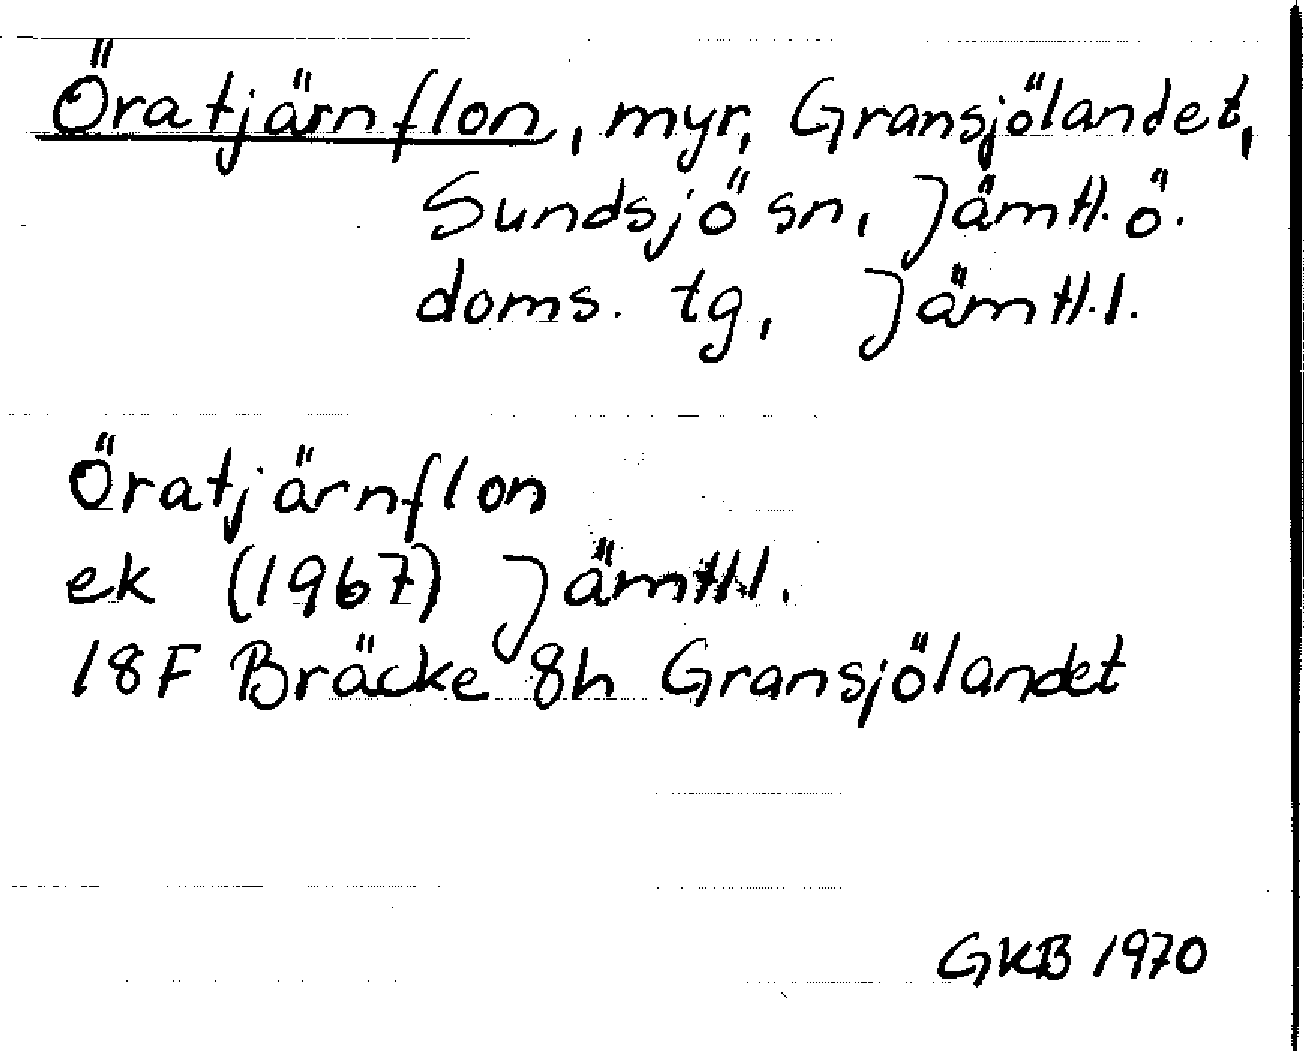 Öratjärnflon, myr, Gransjölandet,
Sundsjö sn, Jämtl. ö.
doms. tg, Jämtl. l.
Öratjärnflon
ek (1967) Jämtl. l.
18F Bräcke 8h Gransjölandet
GKB 1970